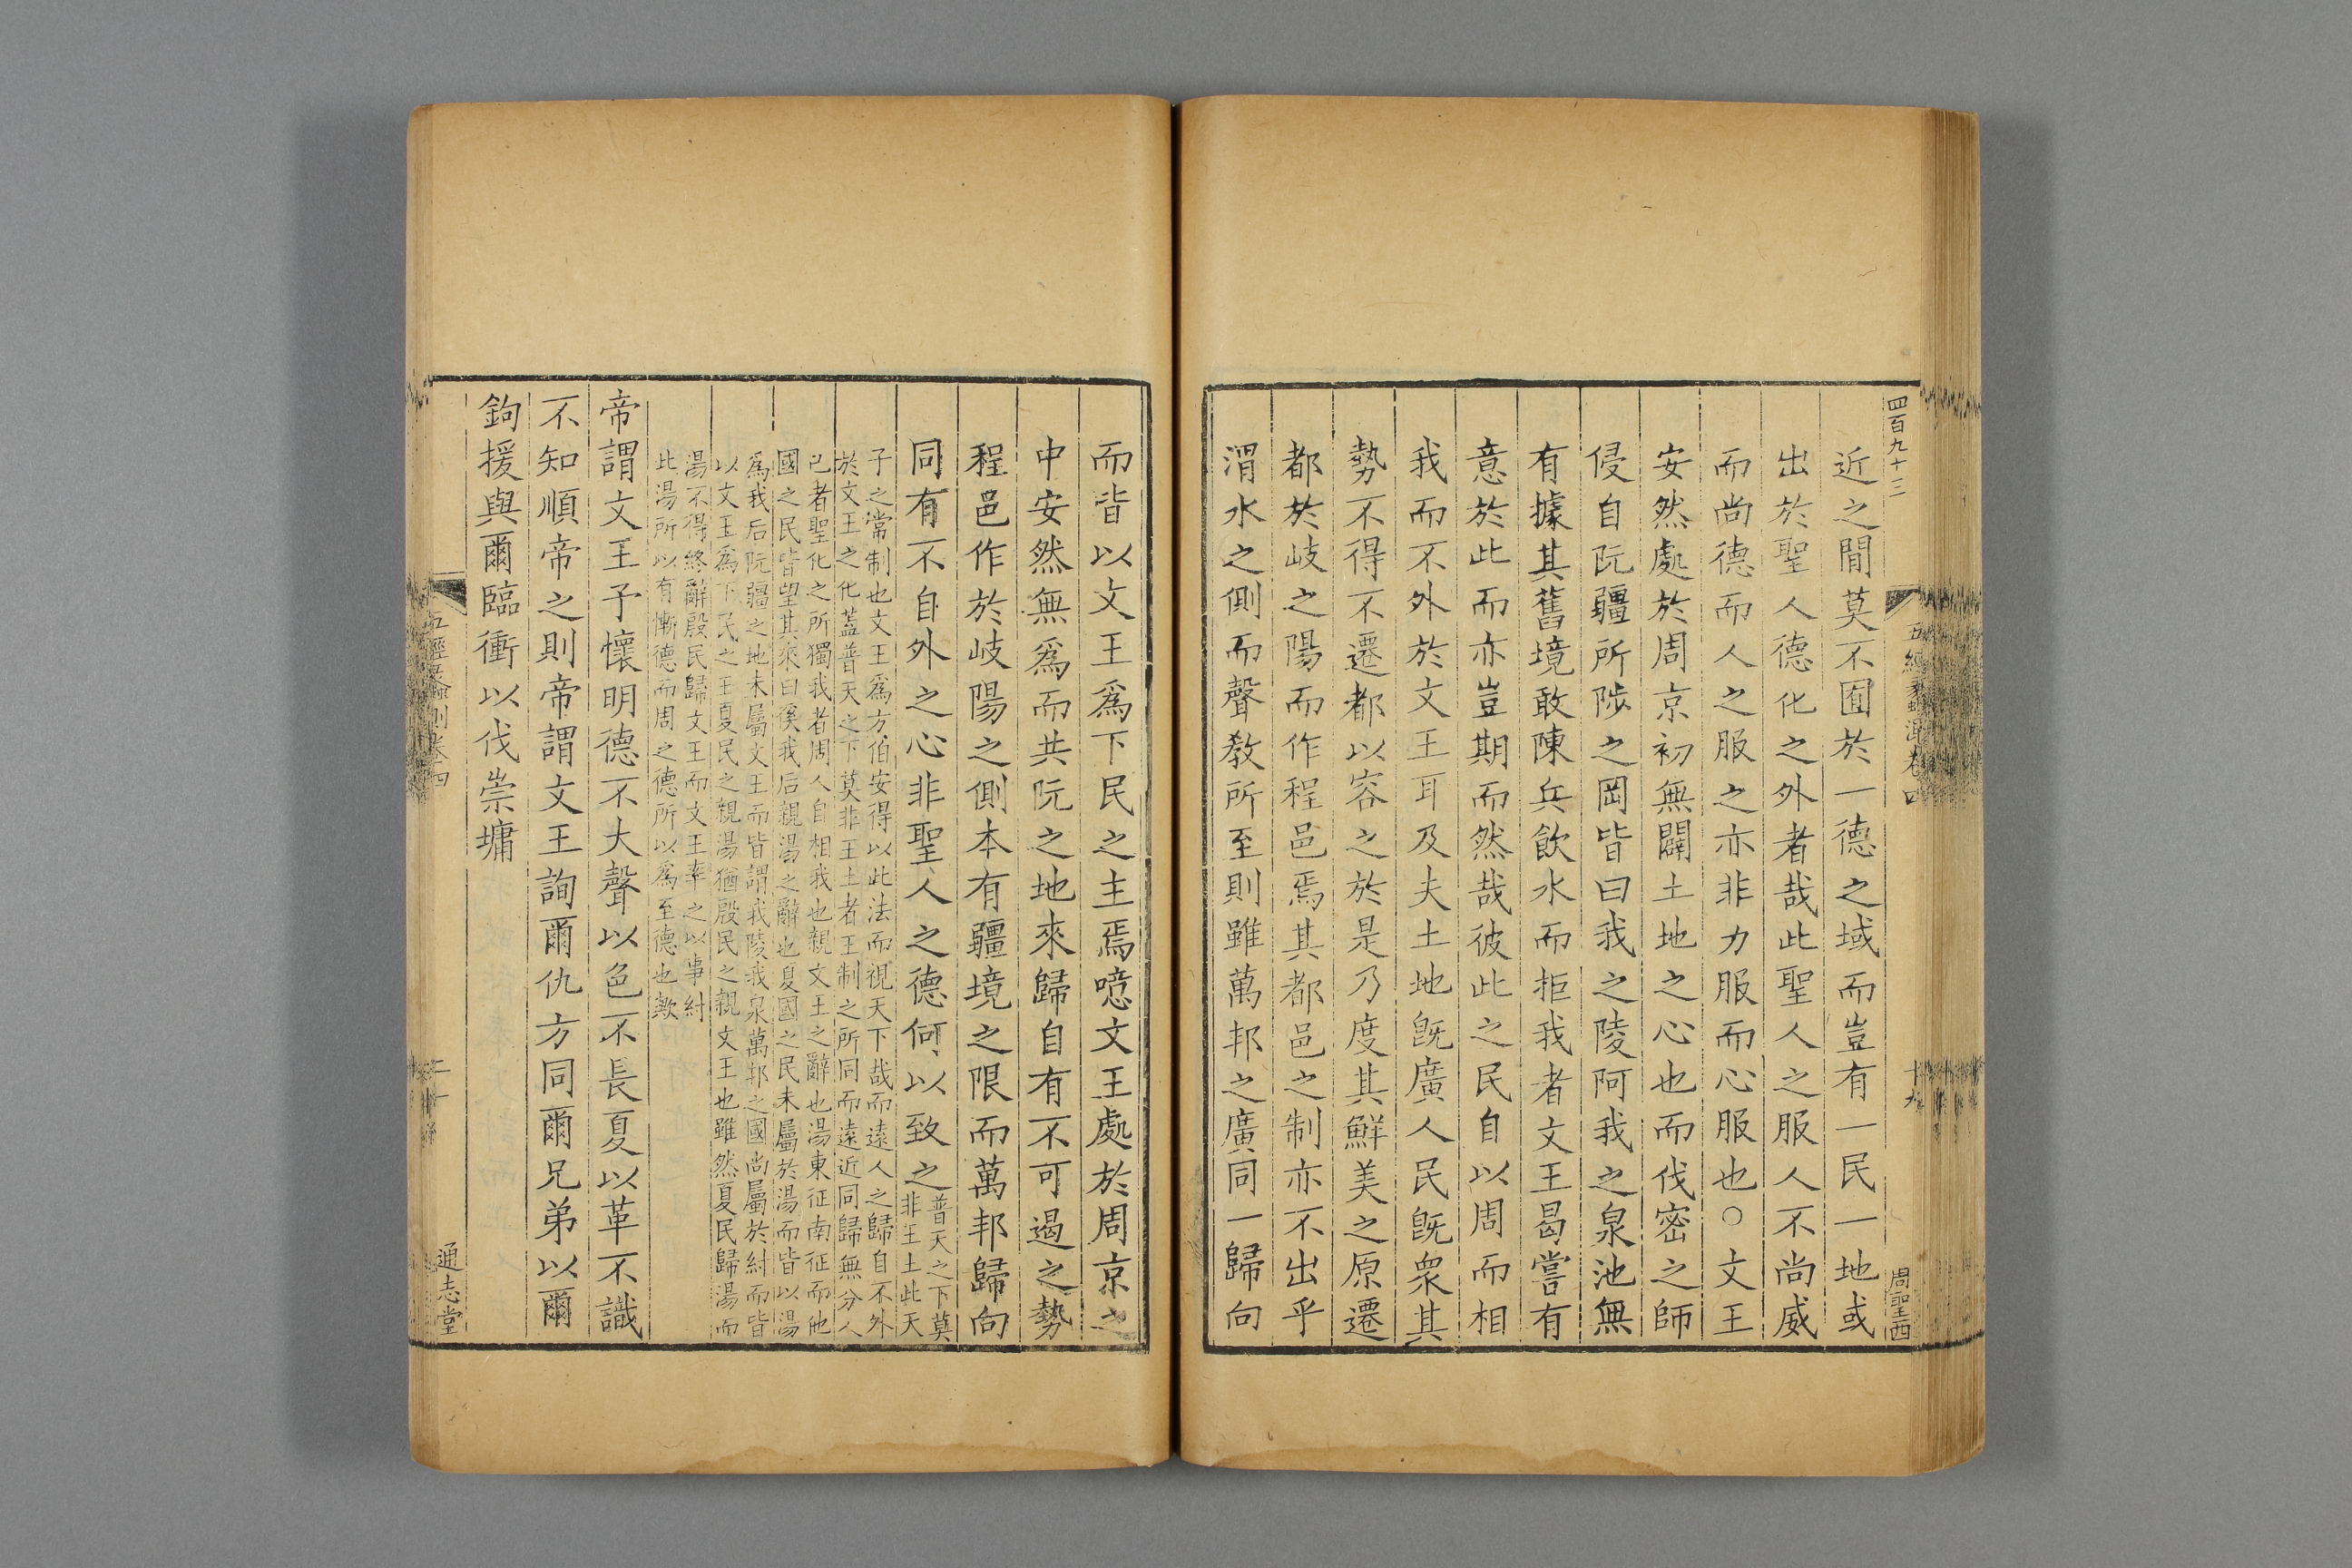 四百九十三
近之間莫不囿於一德之域而豈有一民一地或
出於聖人德化之外者哉此聖人之服人不尚威
而尚德而人之服之亦非力服而心服也○文王
安然處於周京初無闢土地之心也而伐密之師
侵自阮疆所陟之岡皆曰我之陵阿我之泉池無
有據其舊境敢陳兵飲水而拒我者文王曷嘗有
意於此而亦豈期而然哉彼此之民自以周而相
我而不外於文王耳及夫土地既廣人民既衆其
勢不得不遷都以容之於是乃度其鮮美之原遷
都於岐之陽而作程邑焉其都邑之制亦不出乎
渭水之側而聲教所至則雖萬邦之廣同一歸向
十九
周聖西
而皆以文王爲下民之主焉噫文王處於周京之
中安然無爲而共阮之地來歸自有不可遏之勢
程邑作於岐陽之側本有疆境之限而萬邦歸向
同有不自外之心非聖人之德何以致之普天之下莫
非王土此天
子之常制也文王爲方伯安得以此法而視天下哉而遠人之歸自不外
於文王之化蓋普天之下莫非王土者王制之所同而遠近同歸無分人
己者聖化之所獨我者周人自相我也親文王之辭也湯東征南征而他
國之民皆望其來曰徯我后親湯之辭也夏國之民未屬於湯而皆以湯
爲我后阮疆之地未屬文王而皆謂我陵我泉萬邦之國尚屬於紂而皆
以文王爲下民之王夏民之親湯猶殷民之親文王也雖然夏民歸湯而
湯不得終辭殷民歸文王而文王率之以事紂
此湯所以有慚德而周之德所以爲至德也歟
帝謂文王予懷明德不大聲以色不長夏以革不識
不知順帝之則帝謂文王詢爾仇方同爾兄弟以爾
鉤援與爾臨衝以伐崇墉
通志堂